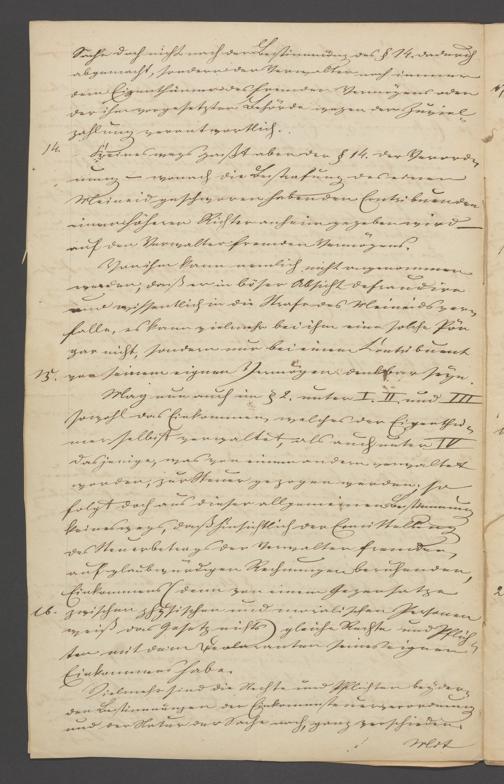 Sache doch nicht nach der Bestimmung des § 14. dadurch
abgemacht, sondern der Verwalter noch immer
dem Eigenthümer des fremden Vermögens oder
der ihm vorgesetzten Behörde wegen der Zuviel-
zahlung verantwortlich.
14. Keinesweges paßt aber der § 14. der Verord-
nung – wonach die Bestrafung des einen
Meineid geschworen habenden Contribuenden
einem höheren Richter anheim gegeben wird –
auf den Verwalter fremden Vermögens.
Von ihm kann nemlich nicht angenommen
werden, daß er in böser Absicht defraudire
und wissentlich in die Strafe des Meineids ver-
falle, es kann vielmehr bei ihm eine solche Pön
gar nicht, sondern nur bei einem Contribuent
15. von seinem eignen Vermögen denkbar seyn.
Mag nun auch im § 2. unter I. II. und III
sowohl das Einkommen, welches der Eigenthü-
mer selbst verwaltet, als auch unter IV
dasjenige, was von einem andern verwaltet
worden, zur Steuer gezogen werden; so
folgt doch aus dieser allgemeinen Bestimmung
keinesweges, daß hinsichtlich der Ermittelung
des Steuerbetrags der Verwalter fremden,
auf glaubwürdigen Rechnungen beruhenden,
Einkommens (denn von einem Gegensatze
16. zwischen physischen und moralischen Personen
weiß das Gesetz nichts) gleiche Rechte und Pflich-
ten mit dem Declaranten seines eignen
Einkommens habe.
Vielmehr sind die Rechte und Pflichten beyder,
den Bestimmungen der Einkommensteuerverordnung
und der Natur der Sache nach, ganz verschieden.